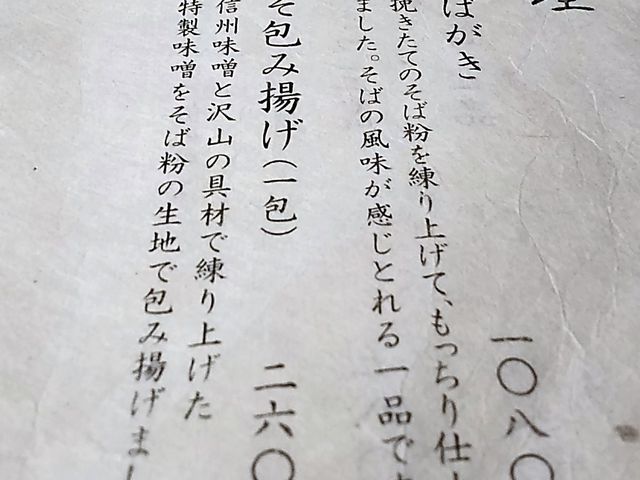 理
ばがき
一〇八〇
挽きたてのそば粉を練り上げて、もっちり仕
ました。そばの風味が感じとれる一品です
そ包み揚げ（一包）
二六〇
信州味噌と沢山の具材で練り上げた
特製味噌をそば粉の生地で包み揚げまし